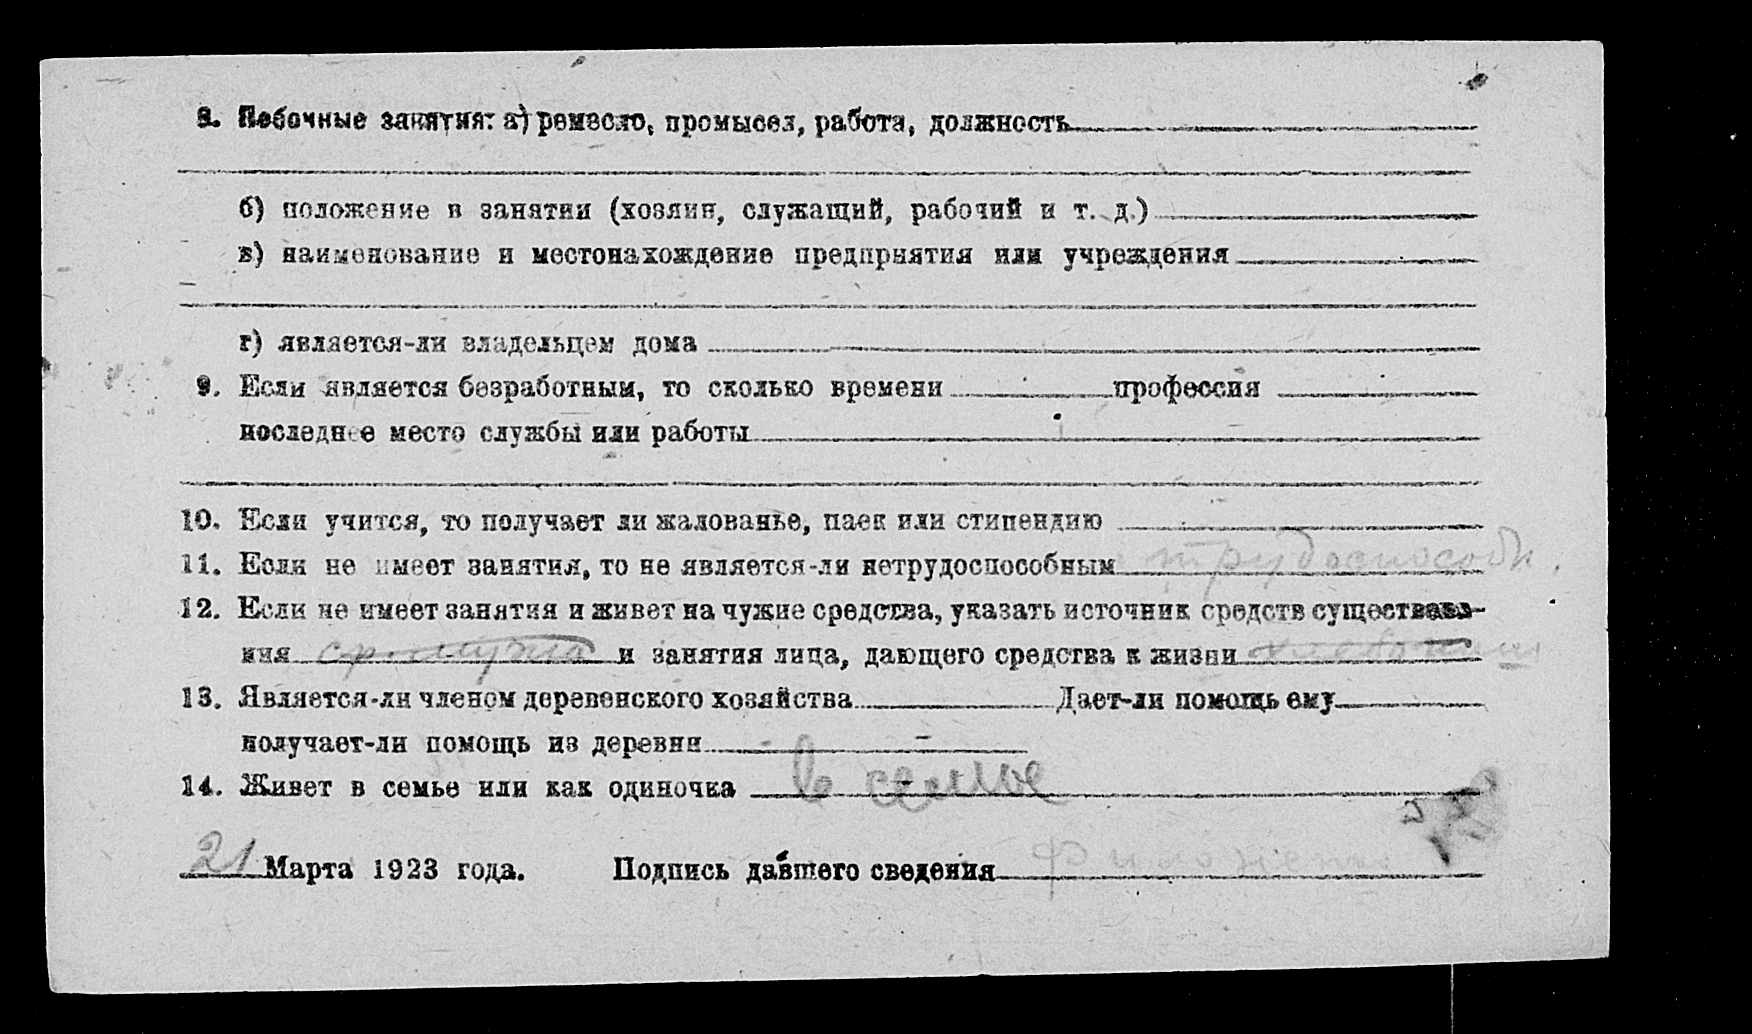 8. Побочные занятия: а) ремесло, промысел, работа, должность
б) положение в занятии (хозяин, служащий, рабочий и т. д.)
в) наименование и местонахождение предприятия или учреждения
г) является-ли владельцем дома
9. Если является безработным, то сколько времени профессия
последнее место службы или работы
10. Если учится, то получает ли жалованье, паек или стипендию
11. Если не имеет занятия, то не является-ли нетрудоспособным трудоспособн.
12. Если не имеет занятия и живет на чужие средства, указать источник средств существова-
ния ср. мужа и занятия лица, дающего средства к жизни
13. Является-ли членом деревенского хозяйства Дает-ли помощь ему
получает-ли помощь из деревни
14. Живет в семье или как одиночка в семье
21 Марта 1923 года. Подпись давшего сведения